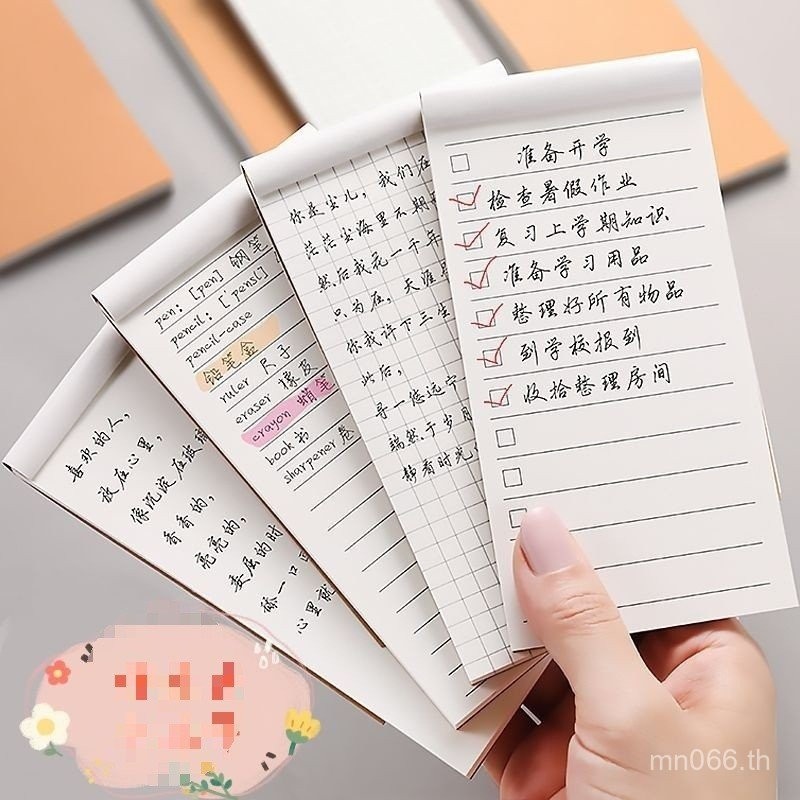 准备开学
检查暑假作业
复习上学期知识
准备学习用品
整理好所有物品
到学校报到
收拾整理房间
你是尘儿，我们在
茫茫尘海里不期
然后我花一千年
只为在，天涯
你我许下三生
此后，
寻一您远宁
端然于岁月
静看时光
pen: [pen] 钢笔
pencil: ['pensl]
pencil-case
铅笔盒
ruler 尺子
eraser 橡皮
crayon 蜡笔
book 书
sharpener 卷
喜欢的人，
放在心里，
像沉淀在玻璃
香香的，
亮亮的，
委屈的时
舔一口
心里就
mn066.th